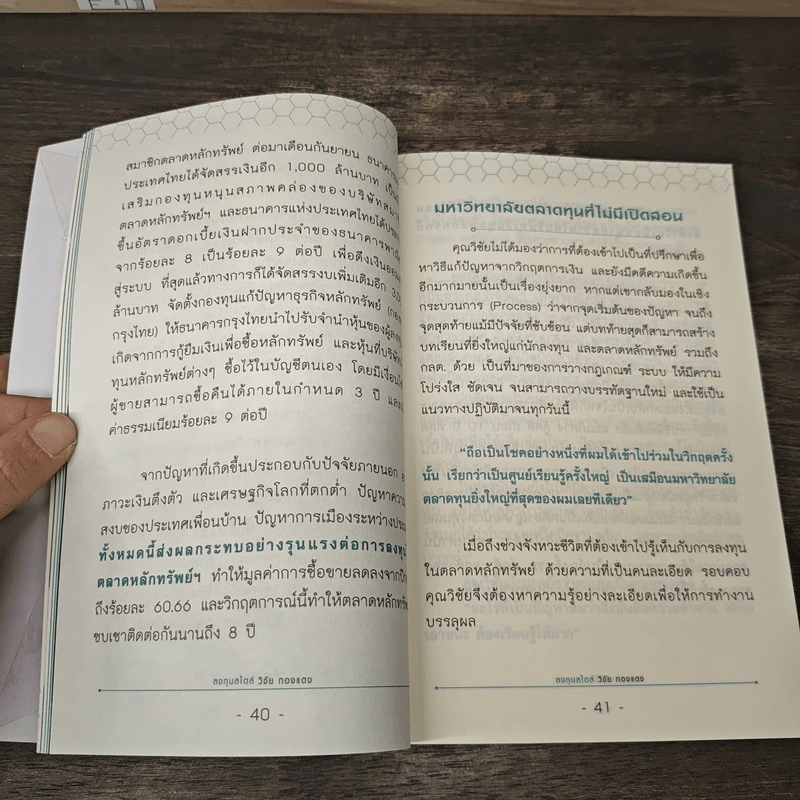 สมาชิกตลาดหลักทรัพย์ ต่อมาเดือนกันยายน
ประเทศไทยได้จัดสรรเงินอีก 1,000 ล้านบาท
เสริมกองทุนหนุนสภาพคล่องของบริษัท
ตลาดหลักทรัพย์ฯ และธนาคารแห่งประเทศไทยได้
ขึ้นอัตราดอกเบี้ยเงินฝากประจำของธนาคาร
จากร้อยละ 8 เป็นร้อยละ 9 ต่อปี เพื่อดึงเงิน
สู่ระบบ ที่สุดแล้วทางการก็ได้จัดสรรงบเพิ่มเติมอีก
ล้านบาท จัดตั้งกองทุนแก้ปัญหาธุรกิจหลักทรัพย์
กรุงไทย) ให้ธนาคารกรุงไทยนำไปรับจำนำหุ้นของ
เกิดจากการกู้ยืมเงินเพื่อซื้อหลักทรัพย์ และหุ้นที่
ทุนหลักทรัพย์ต่างๆ ซื้อไว้ในบัญชีตนเอง โดยมี
ผู้ขายสามารถซื้อคืนได้ภายในกำหนด 3 ปี และ
ค่าธรรมเนียมร้อยละ 9 ต่อปี
จากปัญหาที่เกิดขึ้นประกอบกับปัจจัยภายนอก
ภาวะเงินตึงตัว และเศรษฐกิจโลกที่ตกต่ำ
สงบของประเทศเพื่อนบ้าน ปัญหาการเมืองระหว่าง
ทั้งหมดนี้ส่งผลกระทบอย่างรุนแรงต่อการลงทุน
ตลาดหลักทรัพย์ฯ ทำให้มูลค่าการซื้อขายลดลงจาก
ถึงร้อยละ 60.66 และวิกฤตการณ์นี้ทำให้ตลาด
ซบเซาติดต่อกันนานถึง 8 ปี
ลงทุนสไตล์ วิชัย ทองแตง
- 40 -
มหาวิทยาลัยตลาดทุนที่ไม่มีเปิดสอน
คุณวิชัยไม่ได้มองว่าการที่ต้องเข้าไปเป็นที่ปรึกษาเพื่อ
หาวิธีแก้ปัญหาจากวิกฤตการเงิน และยังมีคดีความเกิดขึ้น
อีกมากมายนั้นเป็นเรื่องยุ่งยาก หากแต่เขากลับมองในเชิง
กระบวนการ (Process) ว่าจากจุดเริ่มต้นของปัญหา จนถึง
จุดสุดท้ายแม้มีปัจจัยที่ซับซ้อน แต่บทท้ายสุดก็สามารถสร้าง
บทเรียนที่ยิ่งใหญ่แก่นักลงทุน และตลาดหลักทรัพย์ รวมถึง
กลต. ด้วย เป็นที่มาของการวางกฎเกณฑ์ ระบบ ให้มีความ
โปร่งใส ชัดเจน จนสามารถวางบรรทัดฐานใหม่ และใช้เป็น
แนวทางปฏิบัติมาจนทุกวันนี้
"ถือเป็นโชคอย่างหนึ่งที่ผมได้เข้าไปร่วมในวิกฤตครั้ง
นั้น เรียกว่าเป็นศูนย์เรียนรู้ครั้งใหญ่ เป็นเสมือนมหาวิทยาลัย
ตลาดทุนยิ่งใหญ่ที่สุดของผมเลยทีเดียว"
เมื่อถึงช่วงจังหวะชีวิตที่ต้องเข้าไปรู้เห็นกับการลงทุน
ในตลาดหลักทรัพย์ ด้วยความที่เป็นคนละเอียด รอบคอบ
คุณวิชัยจึงต้องหาความรู้อย่างละเอียดเพื่อให้การทำงาน
บรรลุผล
ลงทุนสไตล์ วิชัย ทองแตง
- 41 -